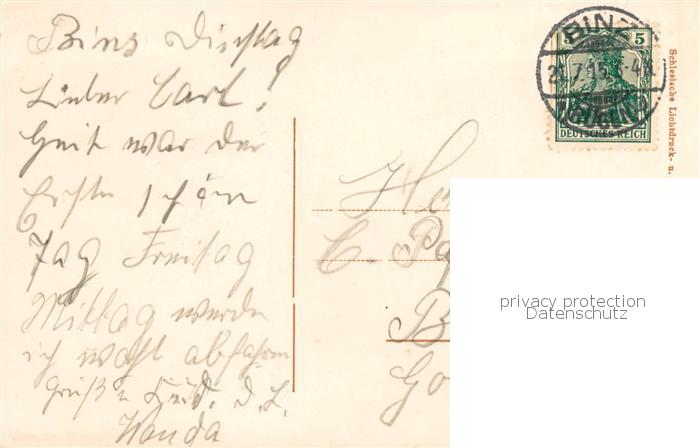 Binz Dienstag
Lieber Carl!
Heut war der
Erste schön
Tag Freitag
Mittag werde
ich wohl abfahren
Gruß u. d. L.
Wanda
C.
BINZ
5
DEUTSCHES REICH
(RÜGEN)
Schlesische Lichtdruck- u.
privacy protection
Datenschutz